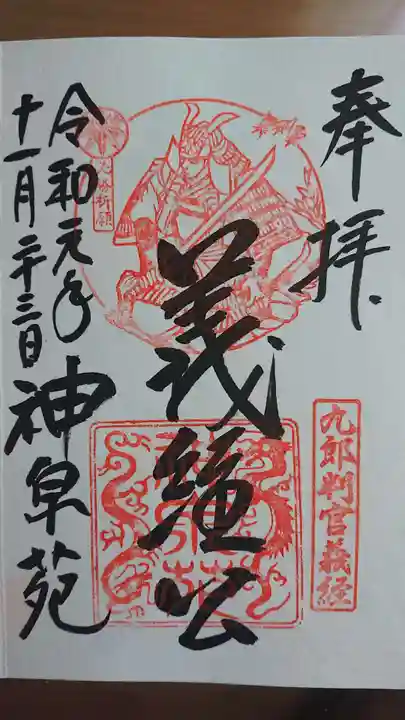 奉拝
九郎判官義経
義經公
必勝祈願
令和元年
十一月二十三日
神泉苑